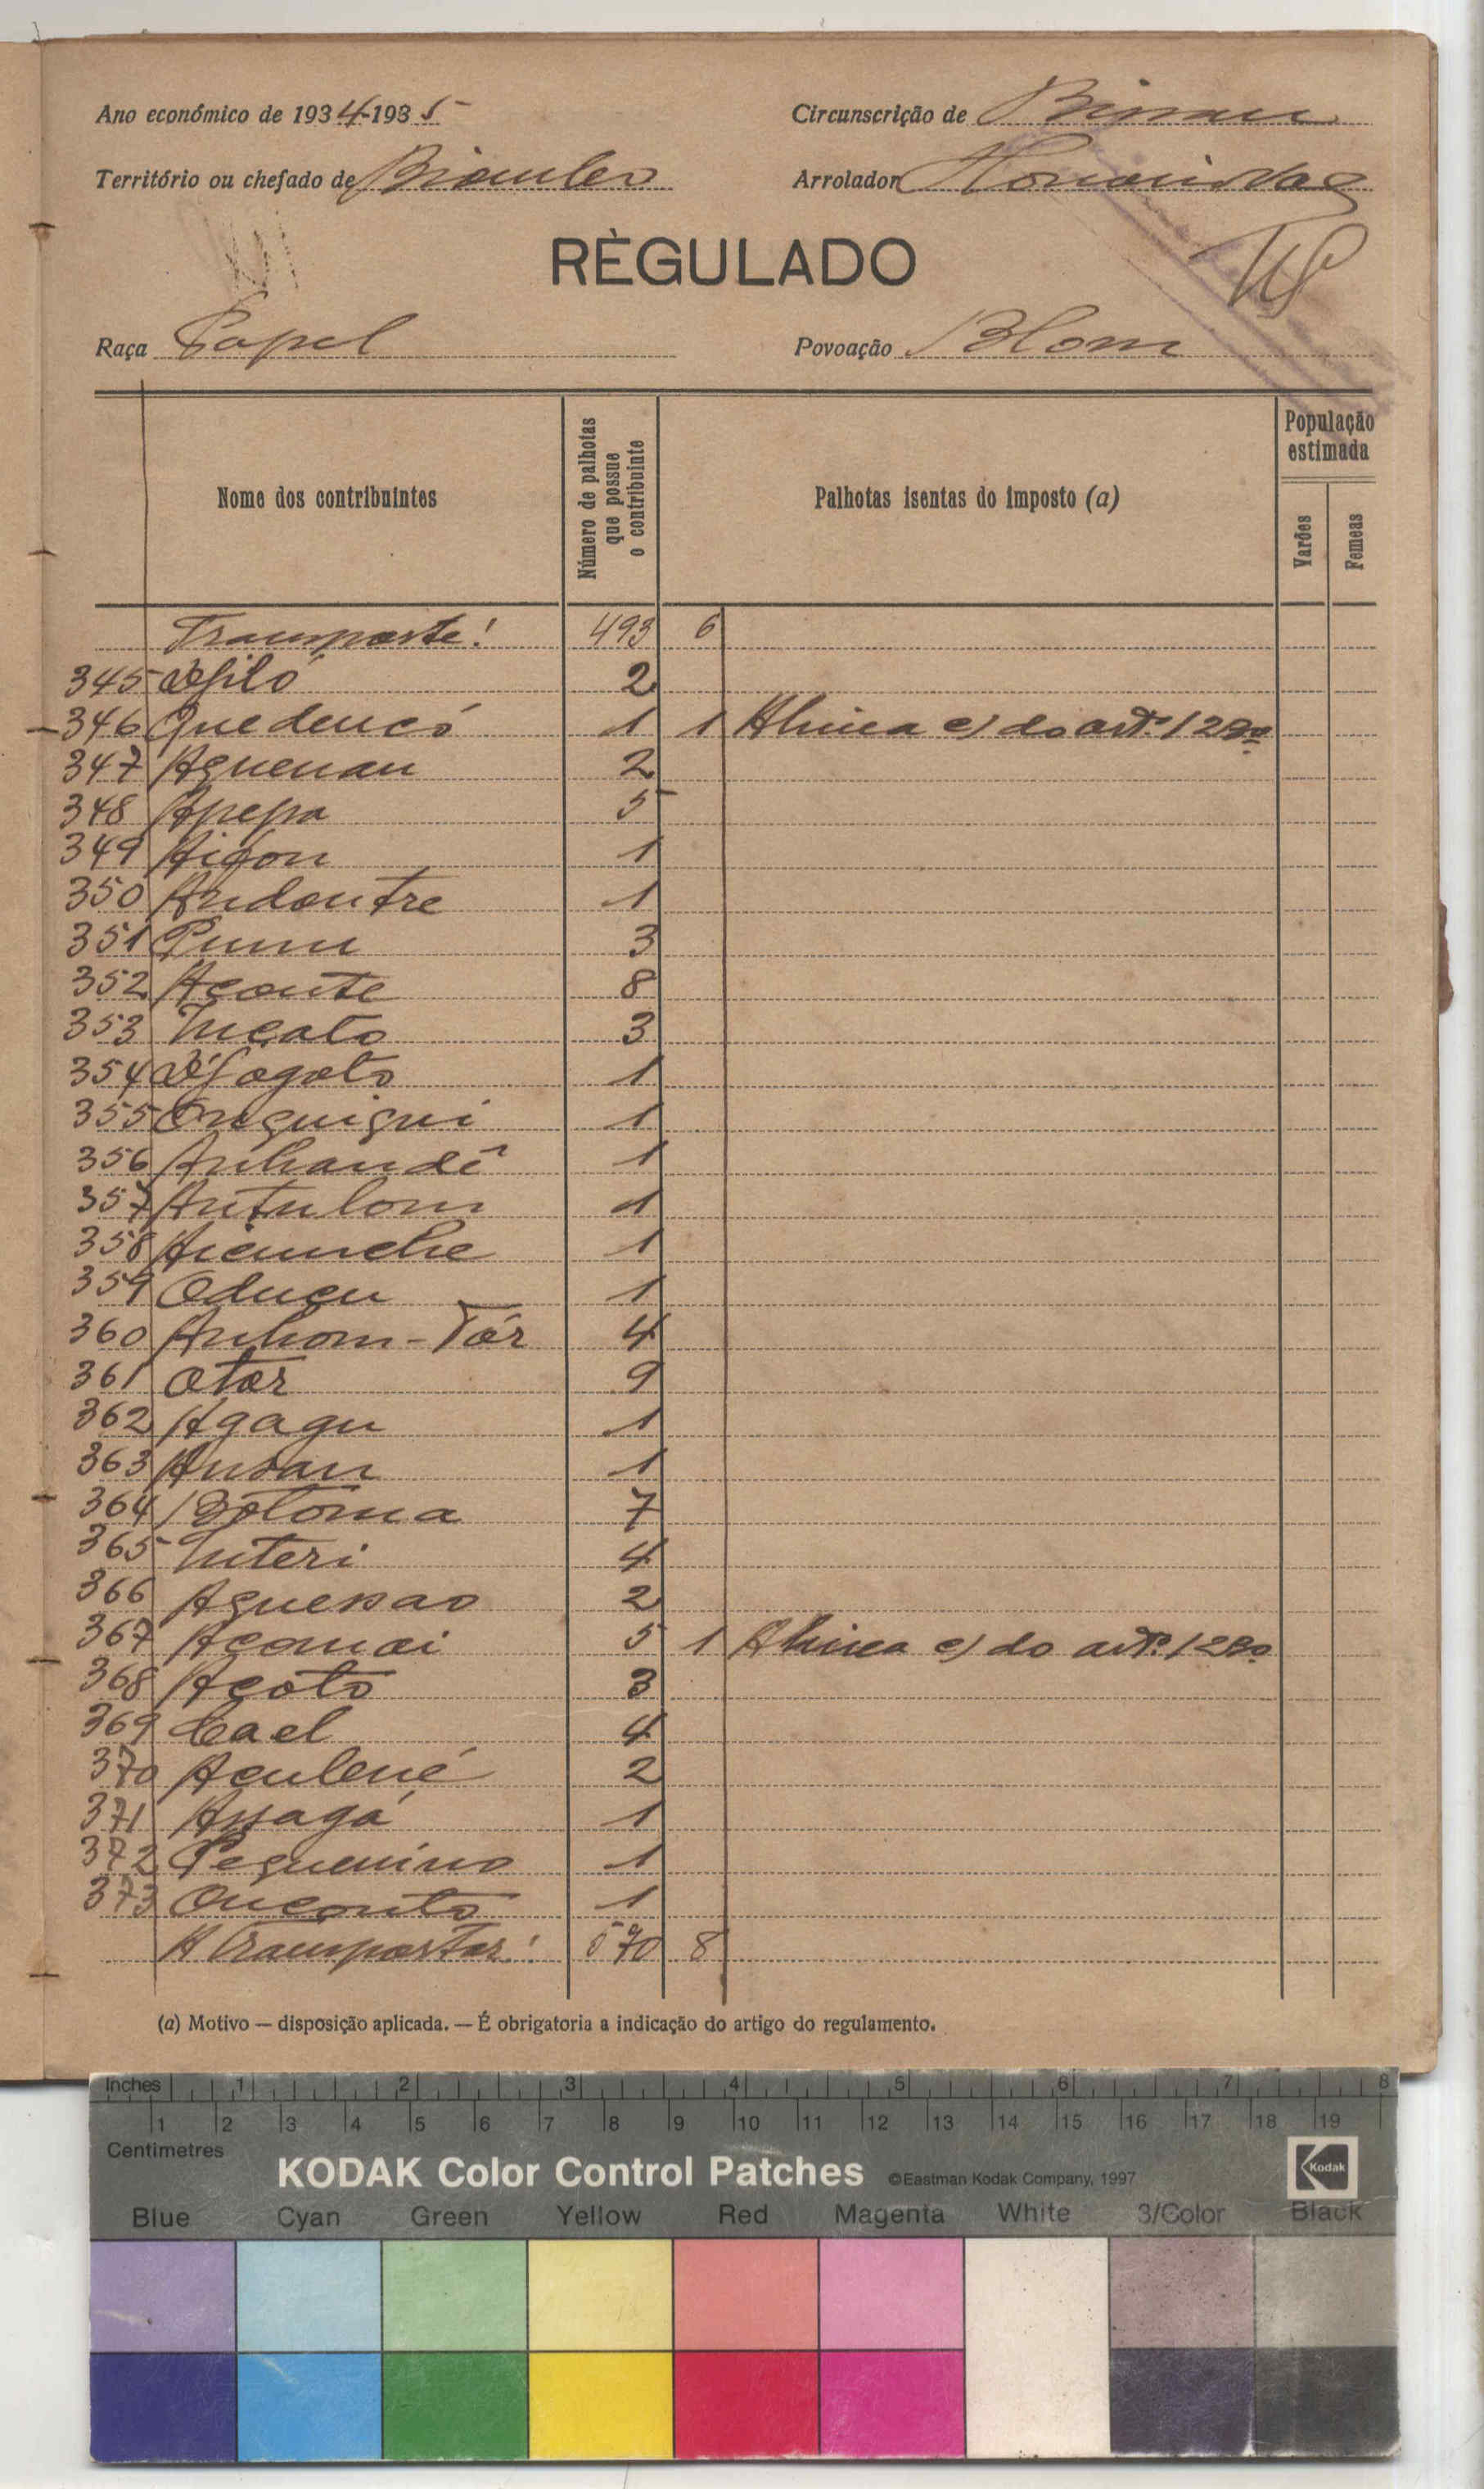 Ano económico de 1934-1935
Circunscrição de Bissau
Território ou chefado de Biombo
Arrolador
RÈGULADO
Raça Papel
Povoação Blom
Nome dos contribuintes
Número de palhotas que possue o contribuinte
Palhotas isentas do imposto (a)
População estimada
Varões
Femeas
Transporte! 493 6
345 2
346 Quedencó 1 1 Alinea e) do artº. 128º
347 Aguenau 2
348 Apepa 5
349 1
350 Andontre 1
351 3
352 Açonte 8
353 Incato 3
354 1
355 Onguigui 1
356 Anhandê 1
357 Antulom 1
358 1
359 Oducu 1
360 Anhom-Tór 4
361 Otor 9
362 Agagu 1
363 1
364 Botoma 7
365 Interi 4
366 2
367 5 1 Alinea e) do artº. 128º
368 Açoto 3
369 Cael 4
370 Aculené 2
371 Assagá 1
372 Pequenino 1
373 1
A Transportar! 570 8
(a) Motivo — disposição aplicada. — É obrigatoria a indicação do artigo do regulamento.
Inches 1 2 3 4 5 6 7 8
1 2 3 4 5 6 7 8 9 10 11 12 13 14 15 16 17 18 19
Centimetres
KODAK Color Control Patches ©Eastman Kodak Company, 1997 Kodak
Blue Cyan Green Yellow Red Magenta White 3/Color Black